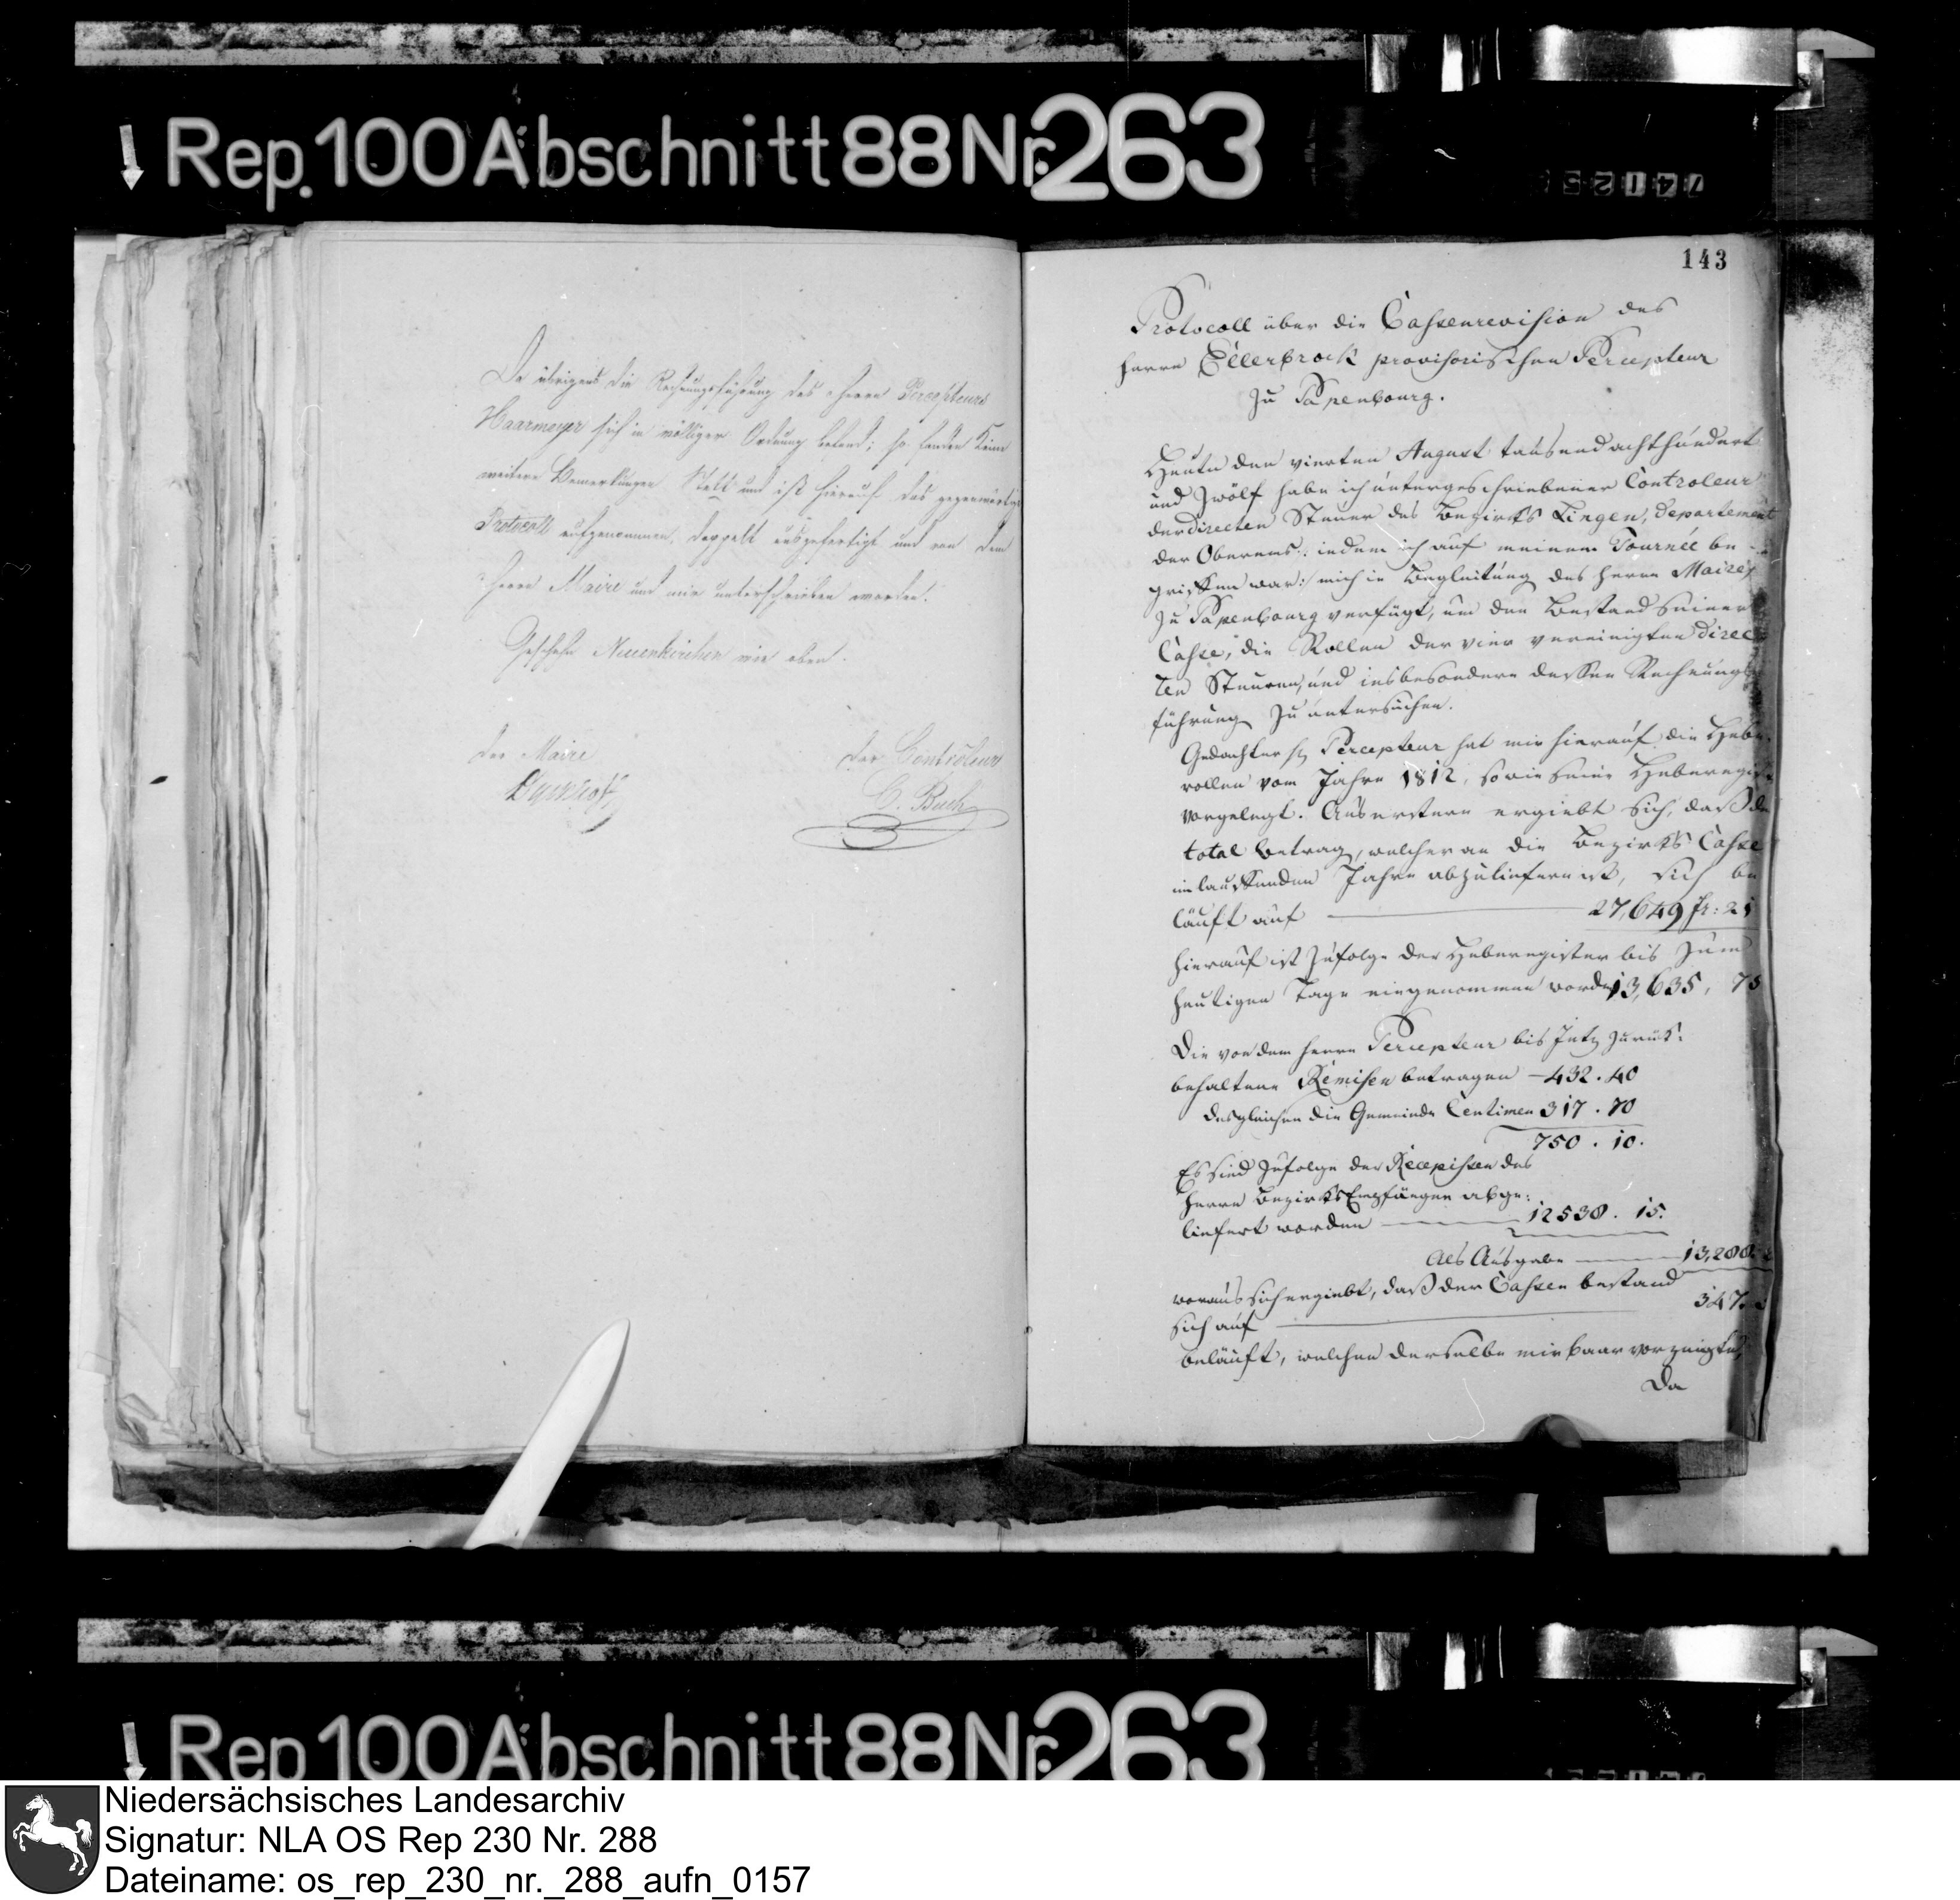 Rep. 100 Abschnitt 88 Nr. 263
Da übrigens die Rechnungsführung des Herrn Percepteurs
Haarmeyer sich in völliger Ordnung befand; so fanden keine
weitere Bemerkungen Statt und ist hierauf das gegenwärtige
Protocoll aufgenommen, doppelt ausgefertigt und von dem
Herrn Maire und mir unterschrieben worden.
Geschehn Neuenkirchen wie oben.
der Maire
der Controleur
C. Buch
143
Protocoll über die Cassenrevision des
Herrn Ellerbrock provisorischen Percepteur
zu Papenbourg.
Heute den vierten August tausend achthundert
und zwölf habe ich untergeschriebener Controleur
der directen Steuer des Bezirks Lingen, Departement
der Oberems: indem ich auf meinem Tournée be-
griffen war: mich in Begleitung des Herrn Maires
zu Papenbourg verfügt, um den Bestand seiner
Casse, die Rollen der vier vereinigten direc
ten Steuren, und insbesondere dessen Rechnungs
führung zu untersuchen.
Gedachter H. Percepteur hat mir hierauf die Hebe-
rollen vom Jahre 1812, so wie seine Heberegis
vorgelegt. Aus erstern ergiebt sich, daß de
total betrag, welcher an die Bezirks Casse
im lauffenden Jahre abzuliefern ist, sich be
läuft auf 27,649 fr: 21
hierauf ist zufolge der Heberegister bis zum
heutigen Tage eingenommen worden 13,635, 75
Die von dem Herrn Percepteur bis jetz zurük:
behaltene Remisen betragen - 432. 40
desgleichen die Gemeinde Centimen 317. 70
750. 10.
Es sind zufolge der Recepissen des
Herrn Bezirks Empfängers abge:
liefert worden 12538. 15.
Als Ausgabe 13,288. 2
woraus sich ergiebt, daß der Cassen bestand
sich auf 347.
beläuft, welchen derselbe mir baar vorzeigte,
Da
Rep. 100 Abschnitt 88 Nr. 263
Niedersächsisches Landesarchiv
Signatur: NLA OS Rep 230 Nr. 288
Dateiname: os_rep_230_nr._288_aufn_0157